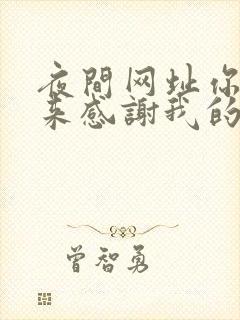 夜間网址你
来感謝我的
曾智勇